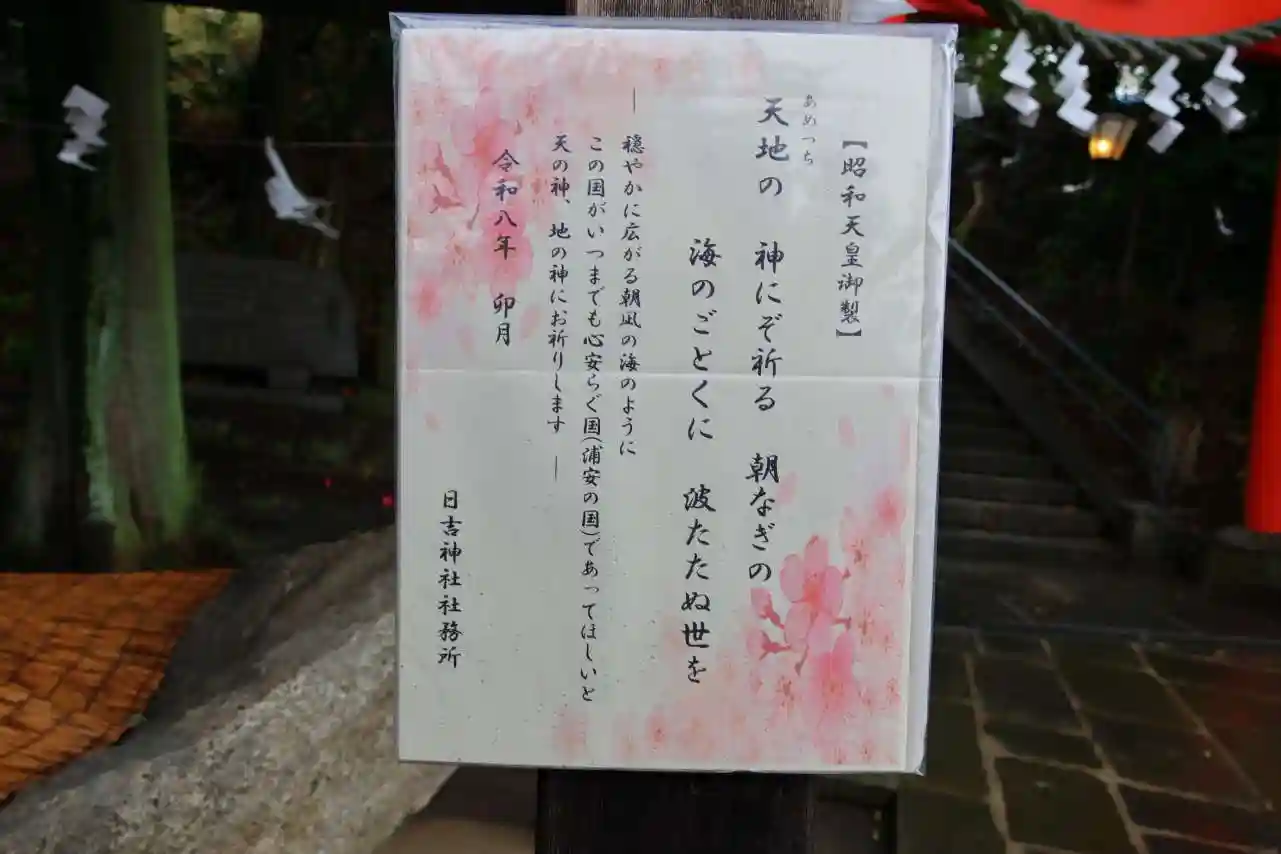 【昭和天皇御製】
あめつち
天地の　神にぞ祈る　朝なぎの
海のごとくに　波たたぬ世を
― 穏やかに広がる朝凪の海のように
この国がいつまでも心安らぐ国(浦安の国)であってほしいと
天の神、地の神にお祈りします ―
令和八年　卯月
日吉神社社務所